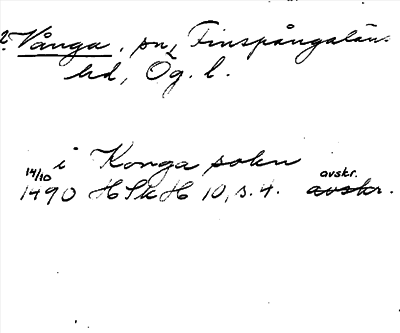 2. Vånga, sn, Finspångalän.
hd, Ög. l.
i Konga sokn
14/10 avskr.
1490 HSkH 10, s. 4. avskr.